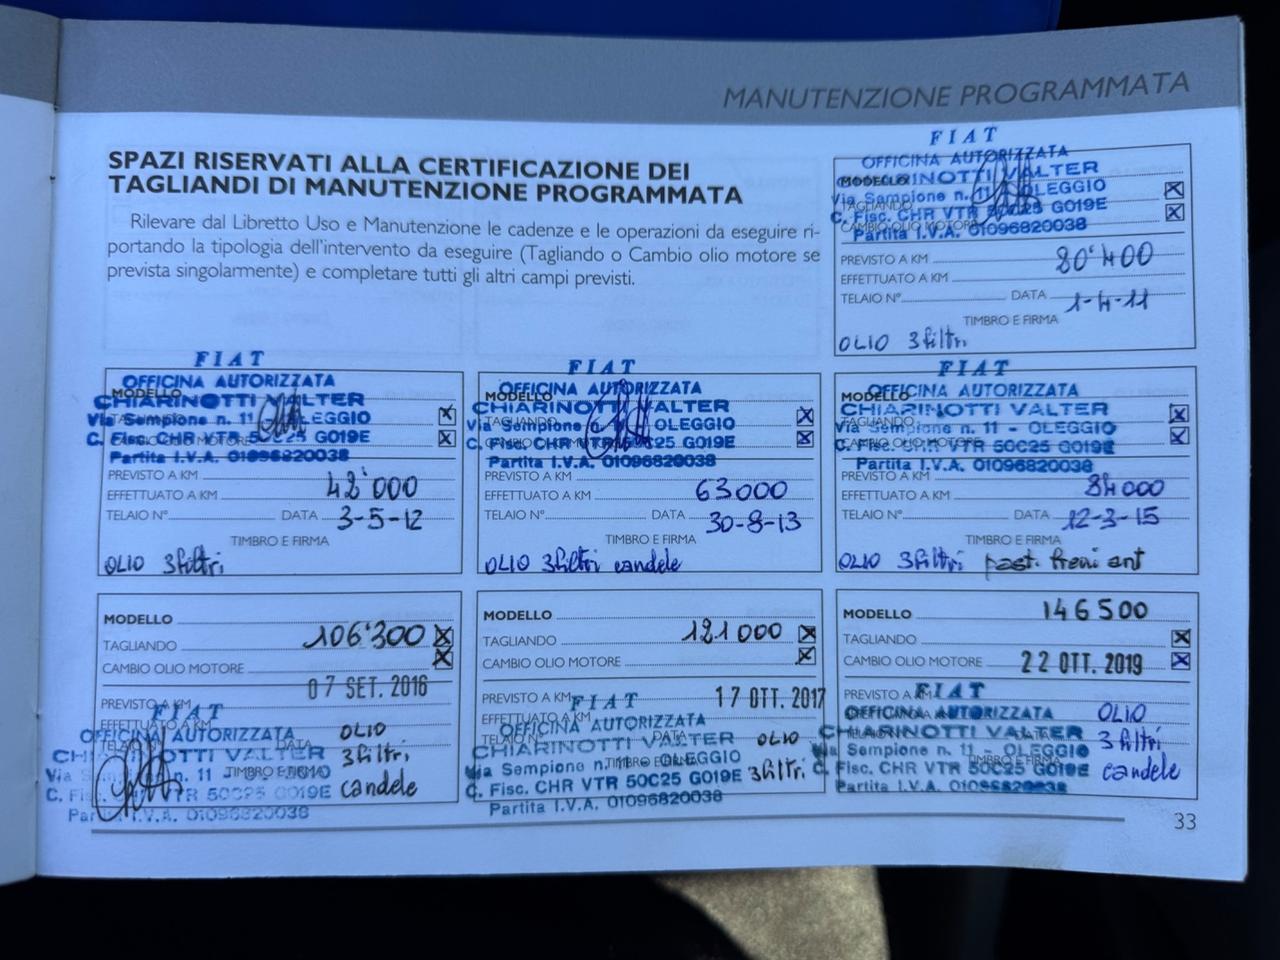 MANUTENZIONE PROGRAMMATA
SPAZI RISERVATI ALLA CERTIFICAZIONE DEI
TAGLIANDI DI MANUTENZIONE PROGRAMMATA
Rilevare dal Libretto Uso e Manutenzione le cadenze e le operazioni da eseguire ri-
portando la tipologia dell'intervento da eseguire (Tagliando o Cambio olio motore se
prevista singolarmente) e completare tutti gli altri campi previsti.
FIAT
OFFICINA AUTORIZZATA
MODELLO
CHIARINOTTI VALTER
Via Sempione n. 11 OLEGGIO
TAGLIANDO
C. Fisc. CHR VTR 50C25 G019E
CAMBIO OLIO MOTORE
Partita I.V.A. 01096820038
PREVISTO A KM 80'400
EFFETTUATO A KM
TELAIO N° DATA 1-4-11
TIMBRO E FIRMA
OLIO 3 filtri
FIAT
OFFICINA AUTORIZZATA
MODELLO
CHIARINOTTI VALTER
Via Sempione n. 11 OLEGGIO
C. Fisc. CHR VTR 50C25 G019E
Partita I.V.A. 01096820038
PREVISTO A KM
EFFETTUATO A KM 42'000
TELAIO N° DATA 3-5-12
TIMBRO E FIRMA
OLIO 3 filtri
FIAT
OFFICINA AUTORIZZATA
MODELLO
CHIARINOTTI VALTER
TAGLIANDO
Via Sempione OLEGGIO
C. Fisc. CHR VTR 50C25 G019E
Partita I.V.A. 01096820038
PREVISTO A KM
EFFETTUATO A KM 63000
TELAIO N° DATA 30-8-13
TIMBRO E FIRMA
OLIO 3 filtri candele
FIAT
MODELLO
OFFICINA AUTORIZZATA
CHIARINOTTI VALTER
TAGLIANDO
Via Sempione n. 11 - OLEGGIO
CAMBIO OLIO MOTORE
C. Fisc. CHR VTR 50C25 G019E
Partita I.V.A. 01096820038
PREVISTO A KM
EFFETTUATO A KM 84000
TELAIO N° DATA 12-3-15
TIMBRO E FIRMA
OLIO 3 filtri past. freni ant
MODELLO
TAGLIANDO 106'300
CAMBIO OLIO MOTORE
07 SET. 2016
PREVISTO A KM
FIAT
EFFETTUATO A KM
OFFICINA AUTORIZZATA OLIO
TELAIO N° DATA
CHIARINOTTI VALTER 3 filtri
Via n. 11 OLEGGIO
TIMBRO E FIRMA
C. Fisc. VTR 50C25 G019E candele
Partita I.V.A. 01096820038
MODELLO
TAGLIANDO 121000
CAMBIO OLIO MOTORE
PREVISTO A KM 17 OTT. 2017
FIAT
EFFETTUATO A KM
OFFICINA AUTORIZZATA
TELAIO N° OLIO
CHIARINOTTI VALTER
Via Sempione n. 11 OLEGGIO
TIMBRO E FIRMA
C. Fisc. CHR VTR 50C25 G019E 3 filtri
Partita I.V.A. 01096820038
MODELLO 146500
TAGLIANDO
CAMBIO OLIO MOTORE 22 OTT. 2019
PREVISTO A KM
FIAT
OFFICINA AUTORIZZATA OLIO
CHIARINOTTI VALTER 3 filtri
Via Sempione n. 11 - OLEGGIO
C. Fisc. CHR VTR 50C25 G019E candele
Partita I.V.A. 01096820038
33